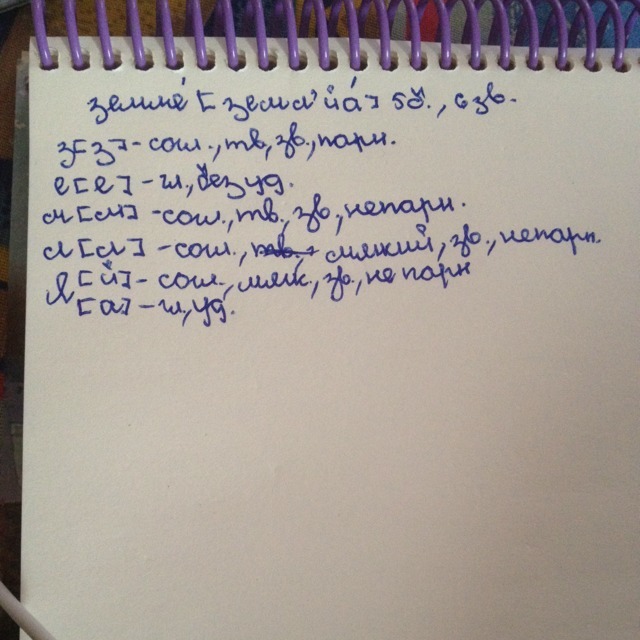 земля́ [земл'йа́] 5б., 6 зв.
з[з]-согл., тв, зв., парн.
е[е]-гл, безуд.
м[м]-согл., тв., зв, непарн.
л[л]-согл., тв., мягкий, зв., непарн.
я [й]-согл., мягк, зв., не парн
[а]-гл, уд.